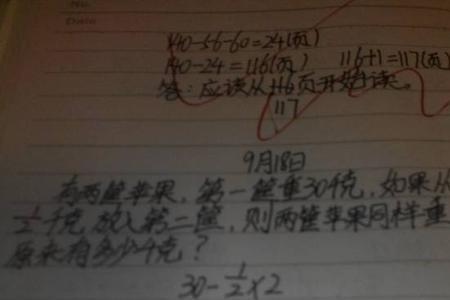 No.
Date
140-56-60=24(页)
140-24=116(页) 116+1=117(页)
答:应该从116页开始读。
117
9月18日
有两筐苹果,第一筐重30千克,如果从
1/2千克放入第二筐,则两筐苹果同样重
原来有多少千克?
30-1/2×2